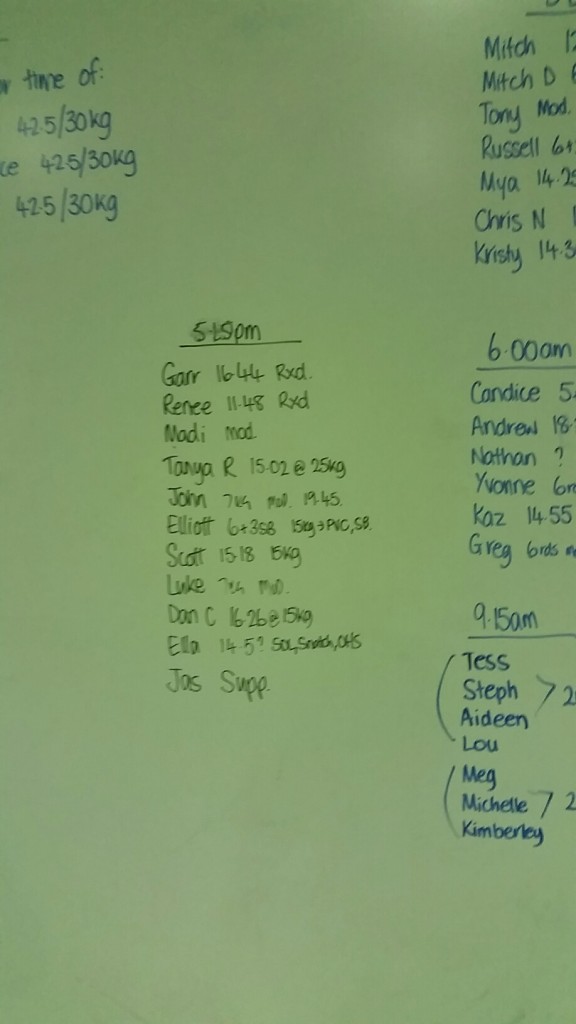 time of:
42.5/30kg
42.5/30kg
42.5/30kg
5.15pm
Garr 16.44 Rxd.
Renee 11.48 Rxd
Madi mod.
Tanya R 15.02 @ 25kg
John 7kg mod. 19.45.
Elliott 6+3SB 15kg→PVC, SB.
Scott 15.18 15kg
Luke 7kg mod.
Dan C 16.26 @ 15kg
Ella 14.5? SDL, Snatch, OHS
Jas Supp.
Mitch
Mitch D
Tony Mod.
Russell 6+
Mya 14.25
Chris N
Kristy 14.3
6.00am
Candice 5
Andrew 18.
Nathan ?
Yvonne 6r
Kaz 14.55
Greg 6rds
9.15am
Tess
Steph > 2
Aideen
Lou
Meg
Michelle > 2
Kimberley